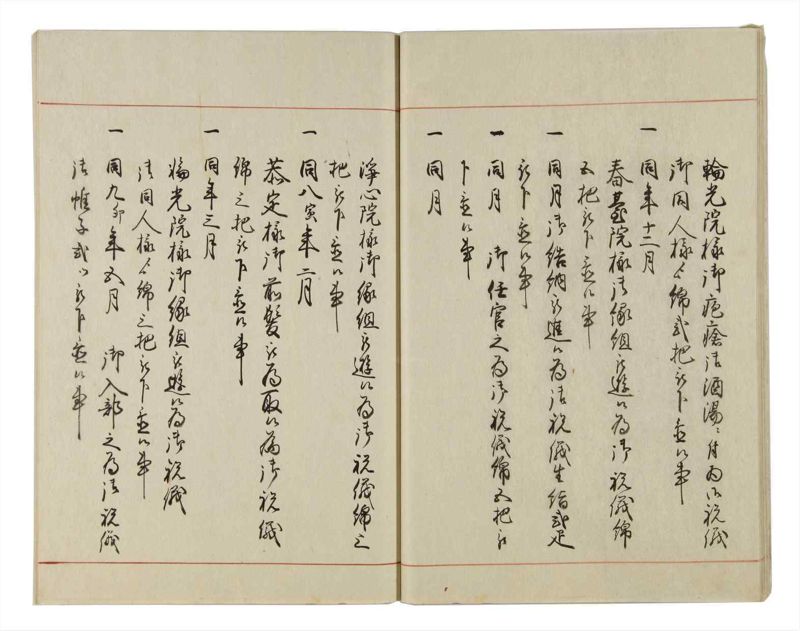 輪光院様御疱瘡御酒湯ニ付為御祝儀
御同人様より綿弐把被下置候事
一 同年十二月
春臺院様御縁組被遊候為御祝儀綿
五把被下置候事
一 同月御結納被進候為御祝儀生絹弐疋
被下置候事
一 同月 御任官之為御祝儀綿五把被
下置候事
一 同月
浄心院様御縁組被遊候為御祝儀綿三
把被下置候事
一 同八寅年二月
恭定様御前髪被為取候為御祝儀
綿三把被下置候事
一 同年三月
 光院様御縁組被遊候為御祝儀
御同人様より綿三把被下置候事
一 同九卯年五月 御入部之為御祝儀
御帷子弐ツ被下置候事